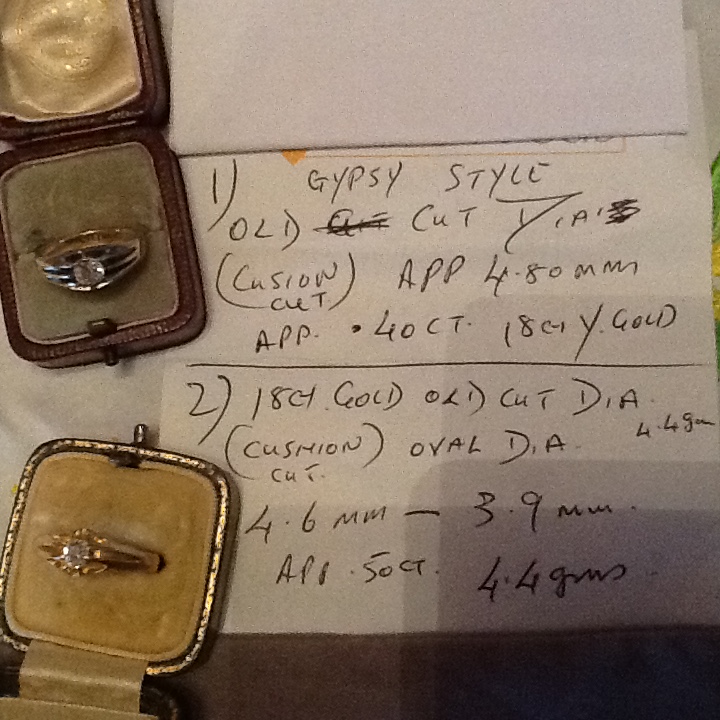 1) GYPSY STYLE
OLD CUT DIA'S
(CUSION CUT) APP 4.80mm
APP. .40CT. 18CT Y. GOLD
2) 18CT. GOLD OLD CUT DIA.
4.4gm
(CUSHION CUT.) OVAL DIA.
4.6 mm — 3.9 mm.
APP .50CT. 4.4gms.